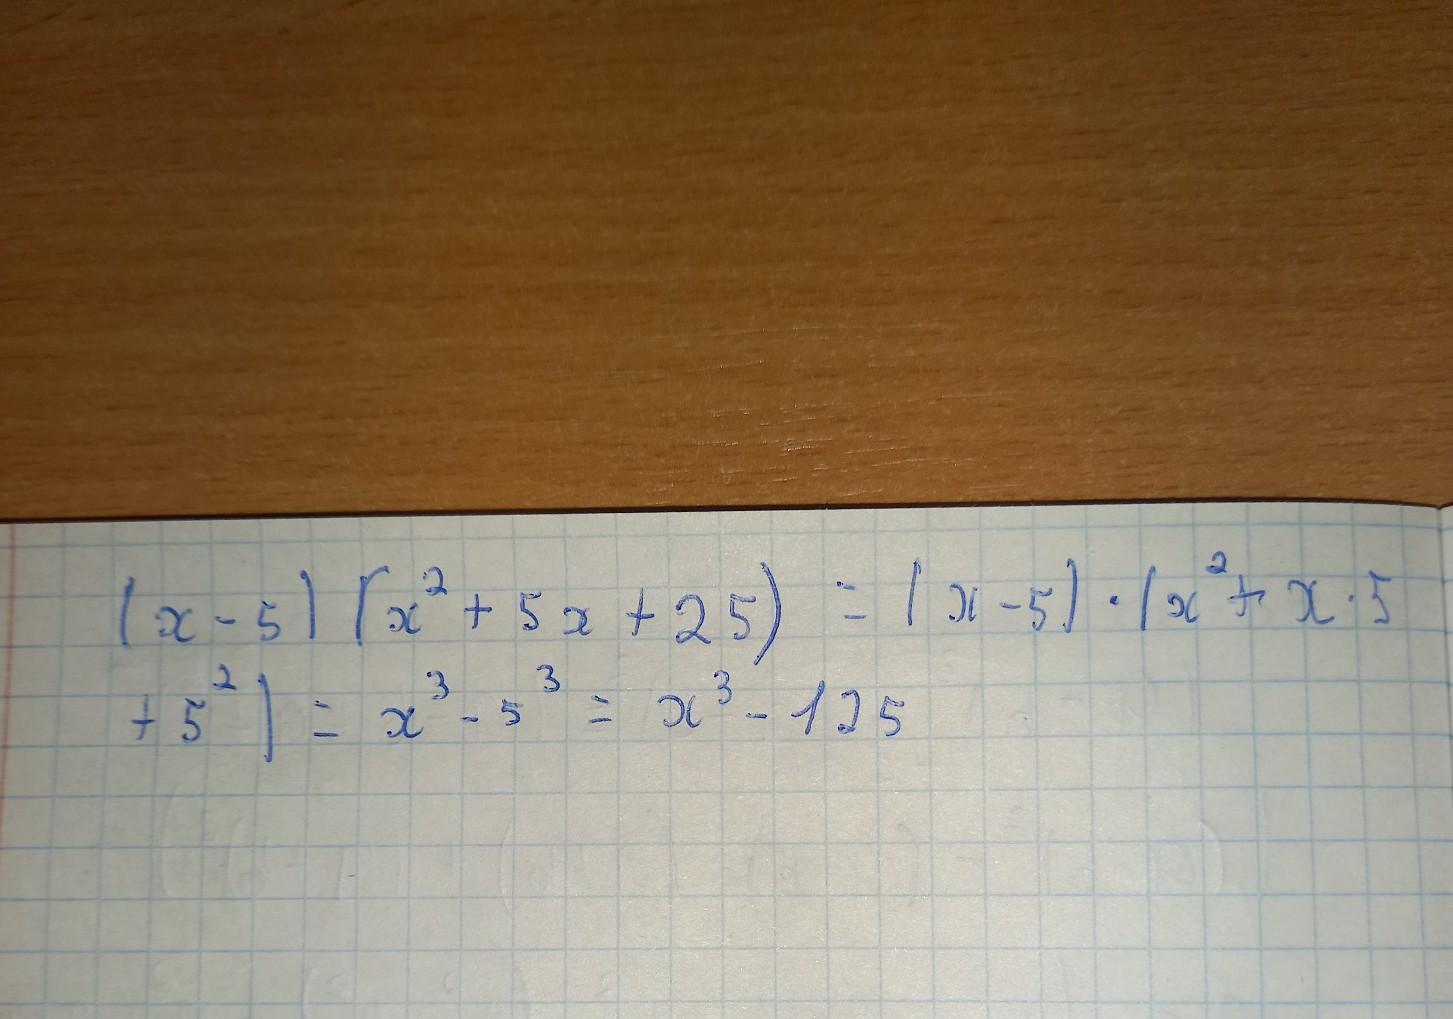 (x - 5) (x² + 5x + 25) = (x - 5) · (x² + x · 5
+ 5²) = x³ - 5³ = x³ - 125